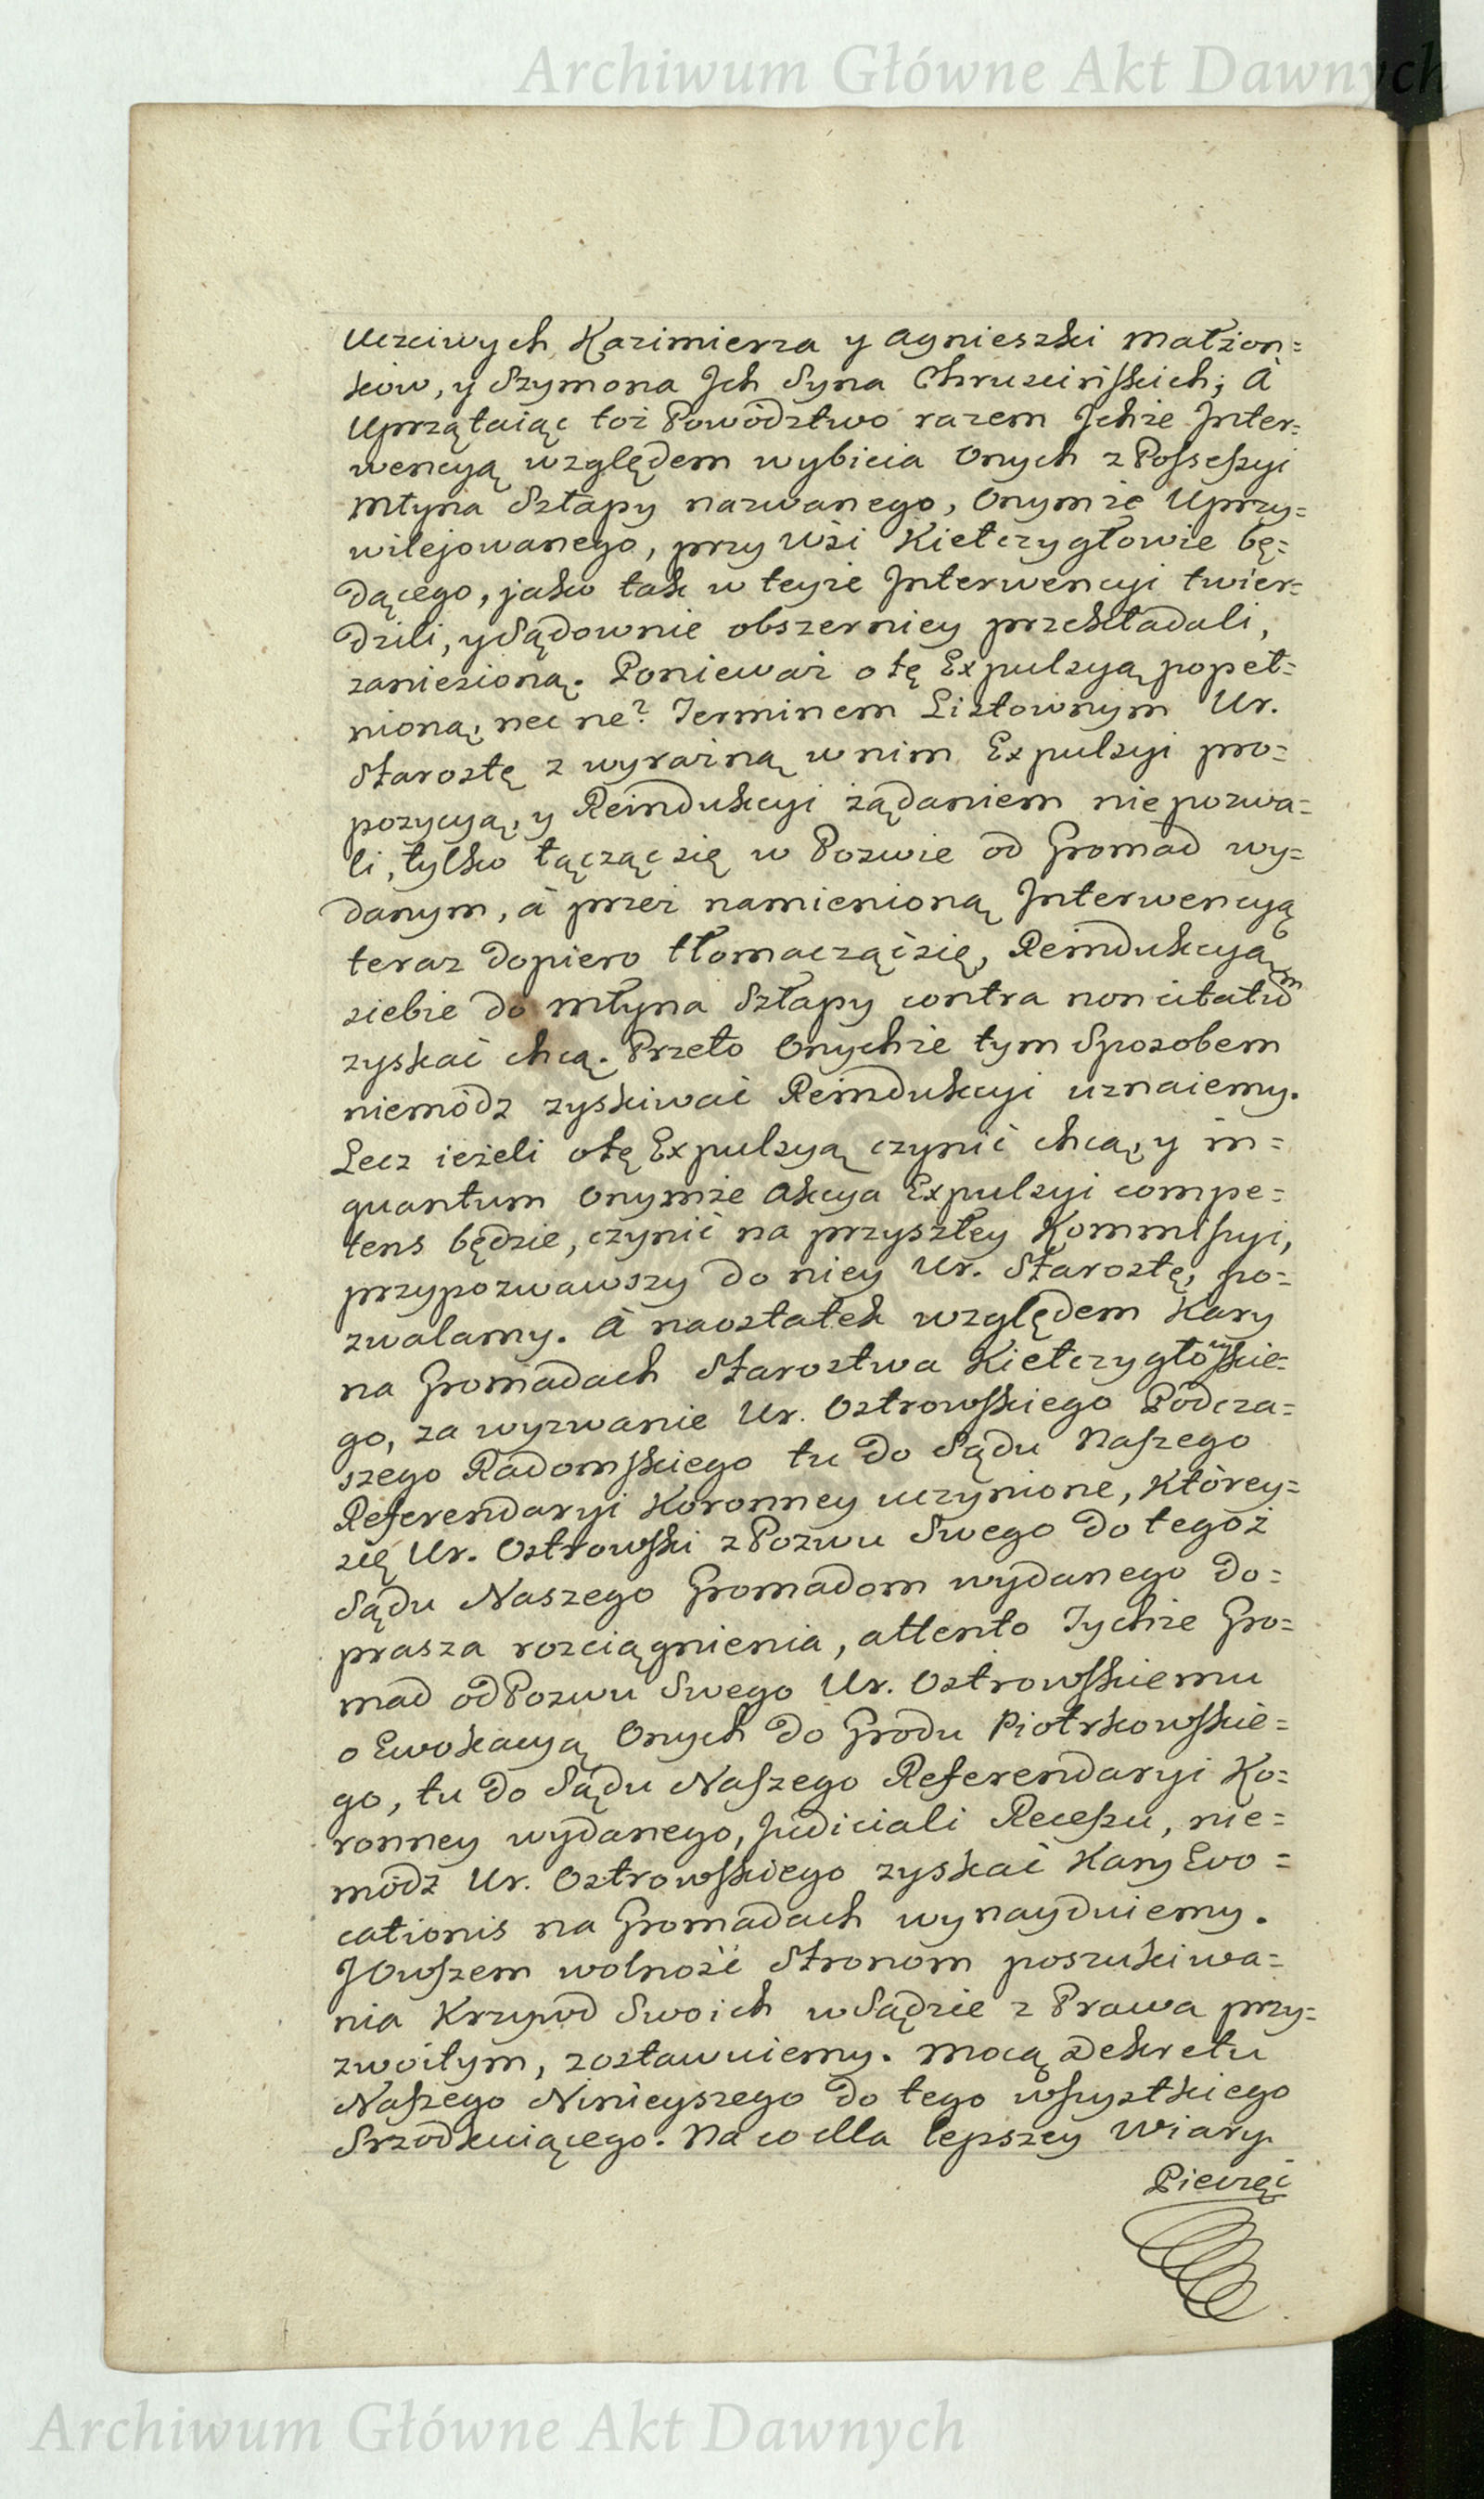 Archiwum Główne Akt Dawnych
Uczciwych Kazimierza y Agnieszki Małżon=
ków, y Szymona Jch Syna Chruścińskich; A
Uprzątaiąc toż Powództwo razem Jchże Inter=
wencyą względem wybicia Onych z Possessyi
Młyna Szłapy nazwanego, Onymże Uprzy=
wilejowanego, przy Wsi Kiełczygłowie bę=
dącego, jako tak w teyże Interwencyi twier=
dzili, y Sądownie obszerniey przekładali,
zaniesioną. Ponieważ o tę Expulsyą popeł=
nioną, nec ne? Terminem Listownym Ur.
Starostę z wyraźną w nim Expulsyi pro=
pozycyą, y Reindukcyi żądaniem nie pozwa=
li, tylko łącząc się w Pozwie od Gromad wy=
danym, á przez namienioną Interwencyą
teraz dopiero tłomacząc się, Reindukcyą
siebie do Młyna Szłapy contra non citatum
zyskać chcą. Przeto Onychże tym Sposobem
niemódz zyskiwać Reindukcyi uznaiemy.
Lecz ieżeli o tę Expulsyą czynić chcą, y in=
quantum Onymże Akcya Expulsyi compe=
tens będzie, czynić na przyszłey Kommissyi,
przypozwawszy do niey Ur. Starostę, po=
zwalamy. A naostatek względem Kary
na Gromadach Starostwa Kiełczygłowskie=
go, za wyzwanie Ur. Ostrowskiego Podcza=
szego Radomskiego tu do Sądu Naszego
Referendaryi Koronney uczynione, Którey=
się Ur. Ostrowski z Pozwu Swego do tegoż
Sądu Naszego Gromadom wydanego do=
prasza rozciągnienia, attento Tychże Gro=
mad od Pozwu Swego Ur. Ostrowskiemu
o Ewokacyą Onych do Grodu Piotrkowskie=
go, tu do Sądu Naszego Referendaryi Ko=
ronney wydanego, Judiciali Recessu, nie=
módz Ur. Ostrowskiego zyskać Kary Evo=
cationis na Gromadach wynayduiemy.
JOwszem wolność Stronom poszukiwa=
nia Krzywd Swoich w Sądzie z Prawa przy=
zwoitym, zostawuiemy. Mocą Dekretu
Naszego Ninieyszego do tego wszystkiego
Srzodkuiącego. Na co dla lepszey Wiary
Pieczęć
Archiwum Główne Akt Dawnych